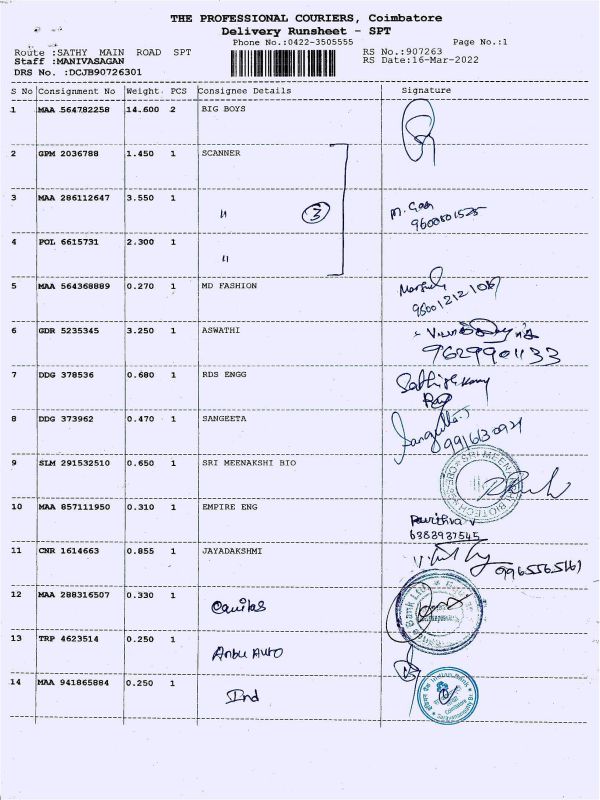 THE PROFESSIONAL COURIERS, Coimbatore
Delivery Runsheet - SPT
Phone No.:0422-3505555 Page No.:1
Route :SATHY MAIN ROAD SPT RS No.:907263
Staff :MANIVASAGAN RS Date:16-Mar-2022
DRS No. :DCJB90726301
S No Consignment No Weight. PCS Consignee Details Signature
1 MAA 564782258 14.600 2 BIG BOYS
2 GPM 2036788 1.450 1 SCANNER
3 MAA 286112647 3.550 1 " 3
4 POL 6615731 2.300 1 "
5 MAA 564368889 0.270 1 MD FASHION
6 GDR 5235345 3.250 1 ASWATHI
9629901133
7 DDG 378536 0.680 1 RDS ENGG
8 DDG 373962 0.470 1 SANGEETA
9 SLM 291532510 0.650 1 SRI MEENAKSHI BIO
10 MAA 857111950 0.310 1 EMPIRE ENG
Pavithra V
6383937545
11 CNR 1614663 0.855 1 JAYADAKSHMI
9965565161
12 MAA 288316507 0.330 1
13 TRP 4623514 0.250 1 Anbu Auto
14 MAA 941865884 0.250 1 Ind